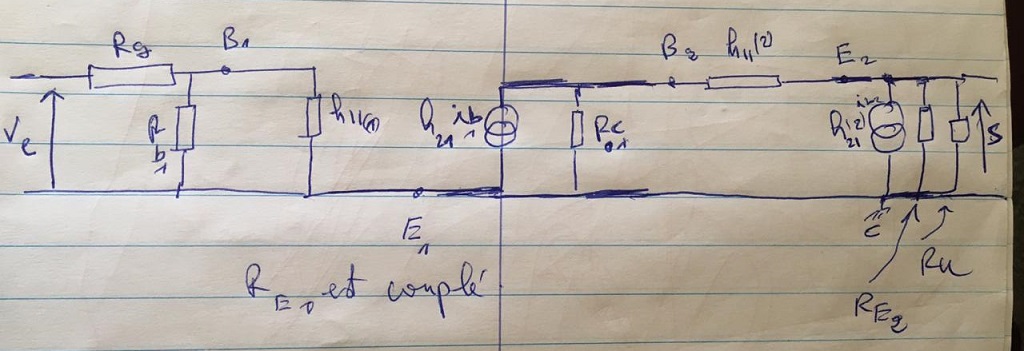 Rg B1 B2 h11(2) E2
Ve Rb1 h11(1) h21 ib1 Rc1 h21(2) ib2 S
E1 C
RE1 est couplé Ru
RE2